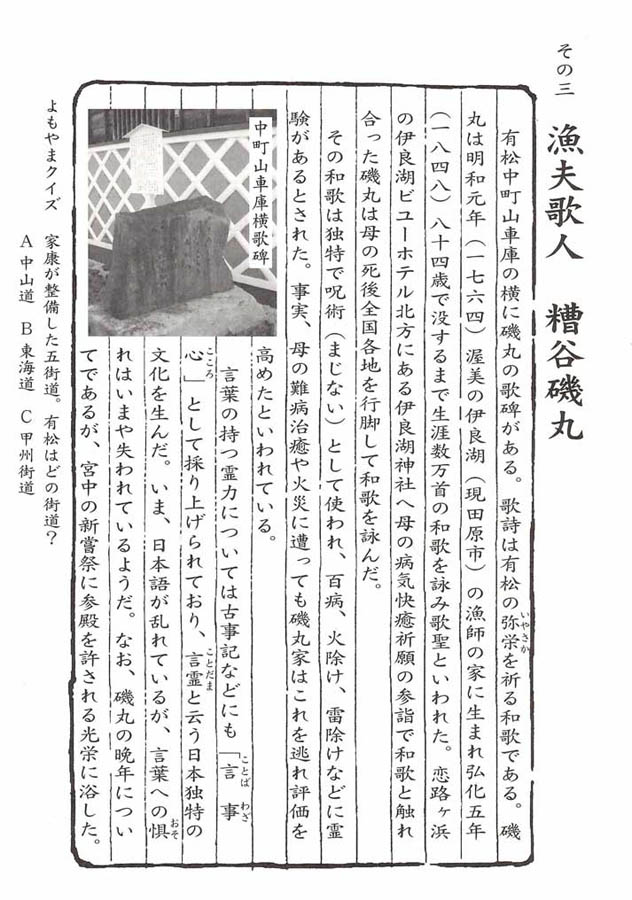 その三　漁夫歌人　糟谷磯丸
有松中町山車庫の横に磯丸の歌碑がある。歌詩は有松の弥栄を祈る和歌である。磯
丸は明和元年（一七六四）渥美の伊良湖（現田原市）の漁師の家に生まれ弘化五年
（一八四八）八十四歳で没するまで生涯数万首の和歌を詠み歌聖といわれた。恋路ヶ浜
の伊良湖ビューホテル北方にある伊良湖神社へ母の病気快癒祈願の参詣で和歌と触れ
合った磯丸は母の死後全国各地を行脚して和歌を詠んだ。
その和歌は独特で呪術（まじない）として使われ、百病、火除け、雷除けなどに霊
験があるとされた。事実、母の難病治癒や火災に遭っても磯丸家はこれを逃れ評価を
高めたといわれている。
言葉の持つ霊力については古事記などにも「言　事
心」として採り上げられており、言霊と云う日本独特の
文化を生んだ。いま、日本語が乱れているが、言葉への惧
れはいまや失われているようだ。なお、磯丸の晩年につい
てであるが、宮中の新嘗祭に参殿を許される光栄に浴した。
いやさか
ことば　わざ
こころ
ことだま
おそ
中町山車庫横歌碑
よもやまクイズ　家康が整備した五街道。有松はどの街道？
A 中山道　B 東海道　C 甲州街道